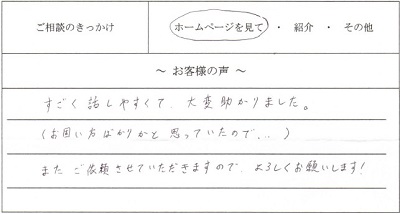 ご相談のきっかけ
ホームページを見て ・ 紹介 ・ その他
～ お客様の声 ～
すごく話しやすくて、大変助かりました。
(お固い方ばかりかと思っていたので...)
またご依頼させていただきますので、よろしくお願いします!